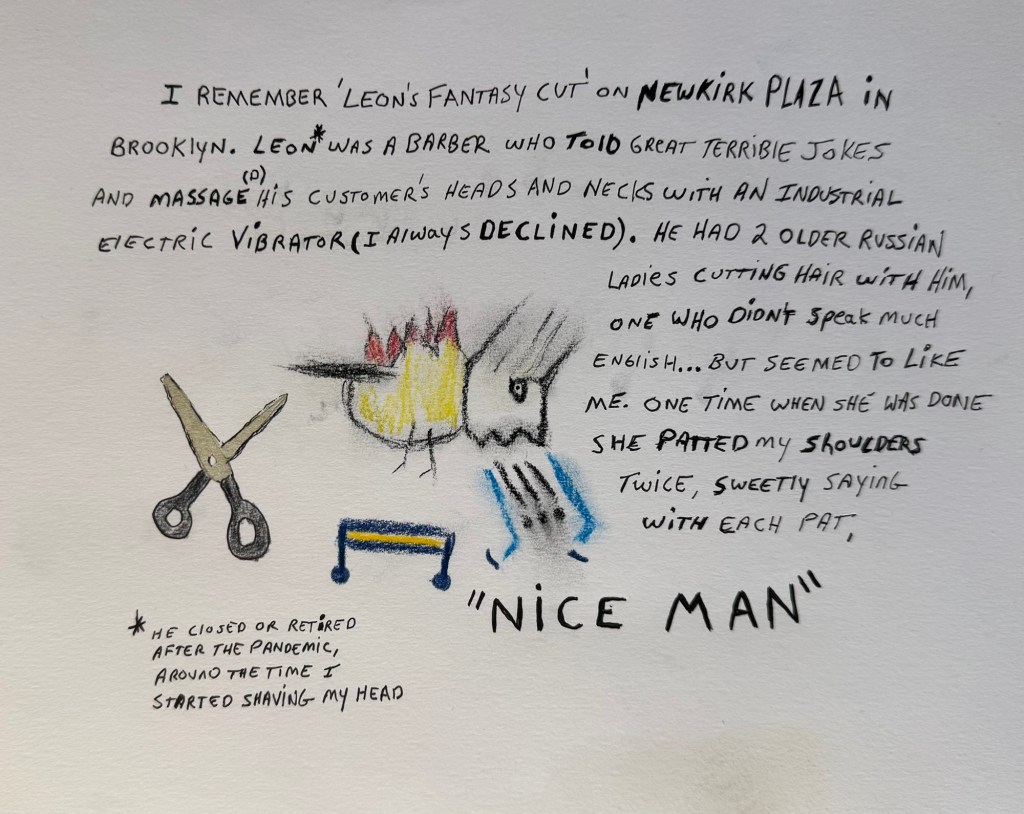 I REMEMBER 'LEON'S FANTASY CUT' ON NEWKIRK PLAZA iN
BROOKLYN. LEON* WAS A BARBER WHO TOLD GREAT TERRIBLE JOKES
AND MASSAGE(D) HiS CUSTOMER'S HEADS AND NECKS WITH AN INDUSTRIAL
ELECTRIC ViBRATOR (I AlwayS DECLiNED). HE HAD 2 OLDER RUSSIAN
LADIES CUTTING HAIR WiTH HiM,
ONE WHO DiDN'T SPeaK MUCH
ENGLISH... BUT SEEMED TO LiKE
ME. ONE TIME WHEN SHE WAS DONE
SHE PATTED my SHOULDERS
TWICE, SWEETLY SAYING
WiTH EACH PAT,
"NiCE MAN"
*HE CLOSED OR RETiRED
AFTER THE PANDEMIC,
AROUND THE TIME I
STARTED SHAViNG My HEAD